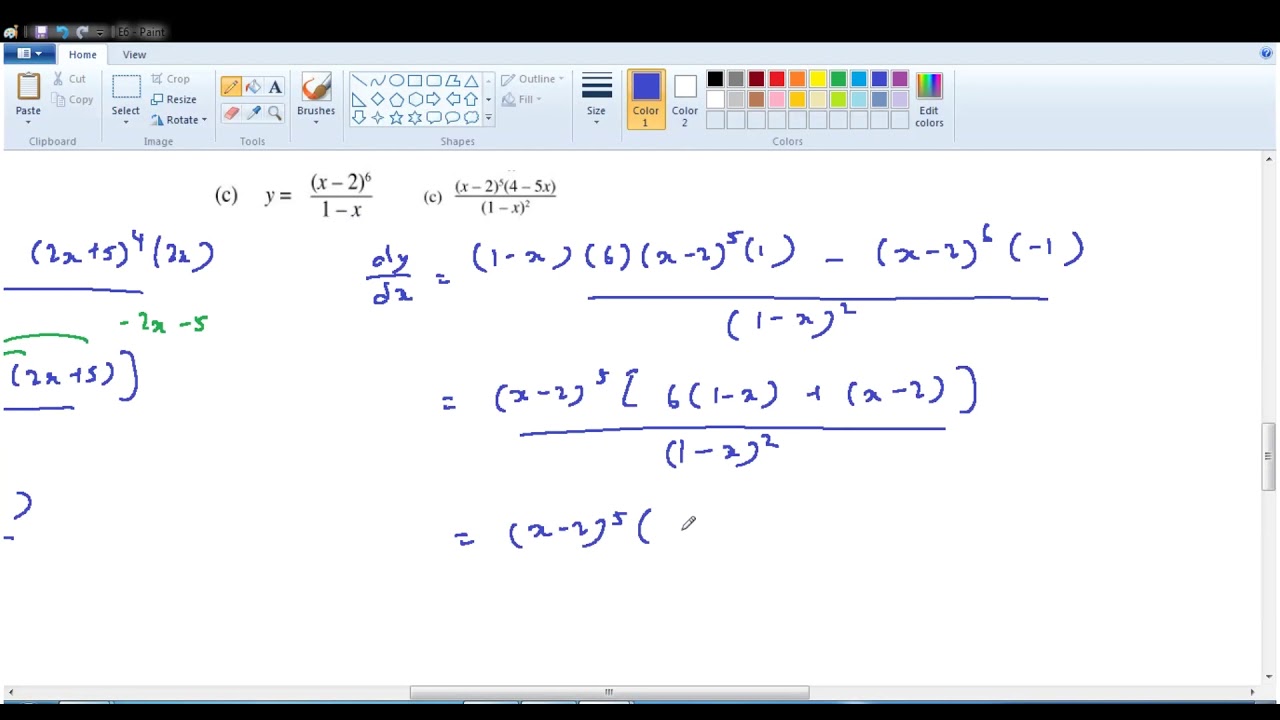 E6 - Paint
Home View
Paste Cut Copy Select Crop Resize Rotate A Brushes Outline Fill Size Color 1 Color 2 Edit colors
Clipboard Image Tools Shapes Colors
(c) y = (x – 2)⁶ / 1 – x (c) (x – 2)⁵(4 – 5x) / (1 – x)²
(2x+5)⁴(2x)
- 2x - 5
(2x+5)]
)
dy/dx = (1-x)(6)(x-2)⁵(1) - (x-2)⁶(-1) / (1-x)²
= (x-2)⁵[ 6(1-x) + (x-2) ] / (1-x)²
= (x-2)⁵(